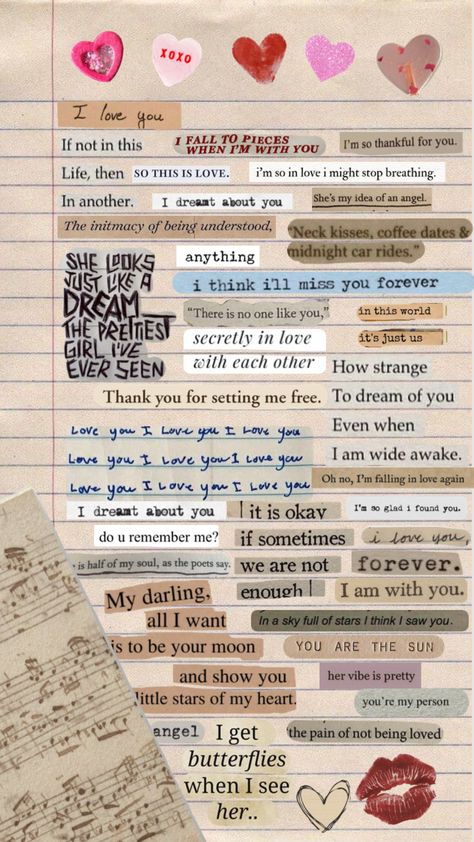 XOXO
I love you
If not in this
I FALL TO PIECES
WHEN I'M WITH YOU
I'm so thankful for you.
Life, then
SO THIS IS LOVE.
i'm so in love i might stop breathing.
In another.
I dreamt about you
She's my idea of an angel.
The initmacy of being understood,
"Neck kisses, coffee dates &
midnight car rides."
SHE LOOKS
JUST LIKE A
DREAM
THE PRETTIEST
GIRL I'VE
EVER SEEN
anything
i think ill miss you forever
"There is no one like you,"
in this world
it's just us
secretly in love
with each other
How strange
To dream of you
Even when
I am wide awake.
Thank you for setting me free.
Love you I Love you I Love you
Love you I Love you I Love you
Love you I Love you I Love you
Oh no, I'm falling in love again
I dreamt about you
it is okay
if sometimes
we are not
enough
I'm so glad i found you.
do u remember me?
i love you,
is half of my soul, as the poets say.
forever.
I am with you.
My darling,
all I want
is to be your moon
and show you
little stars of my heart.
In a sky full of stars I think I saw you.
YOU ARE THE SUN
her vibe is pretty
you're my person
angel
I get
butterflies
when I see
her..
the pain of not being loved